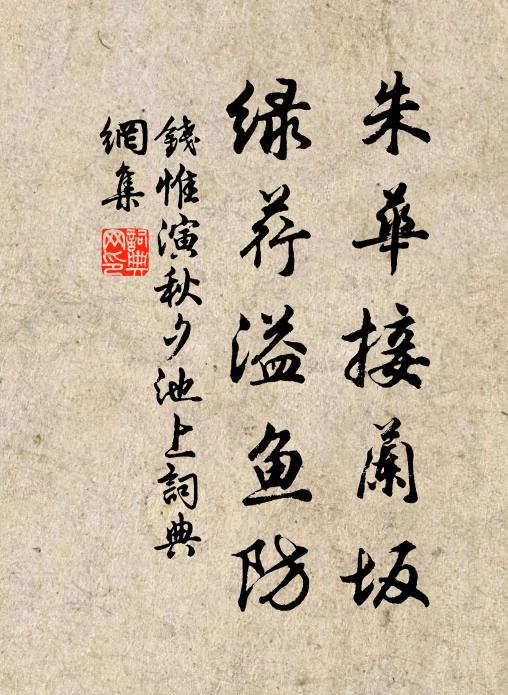 朱華接蘭坂
绿荇溢鱼防
錢惟演秋夕池上詞典
網集
詞典網印